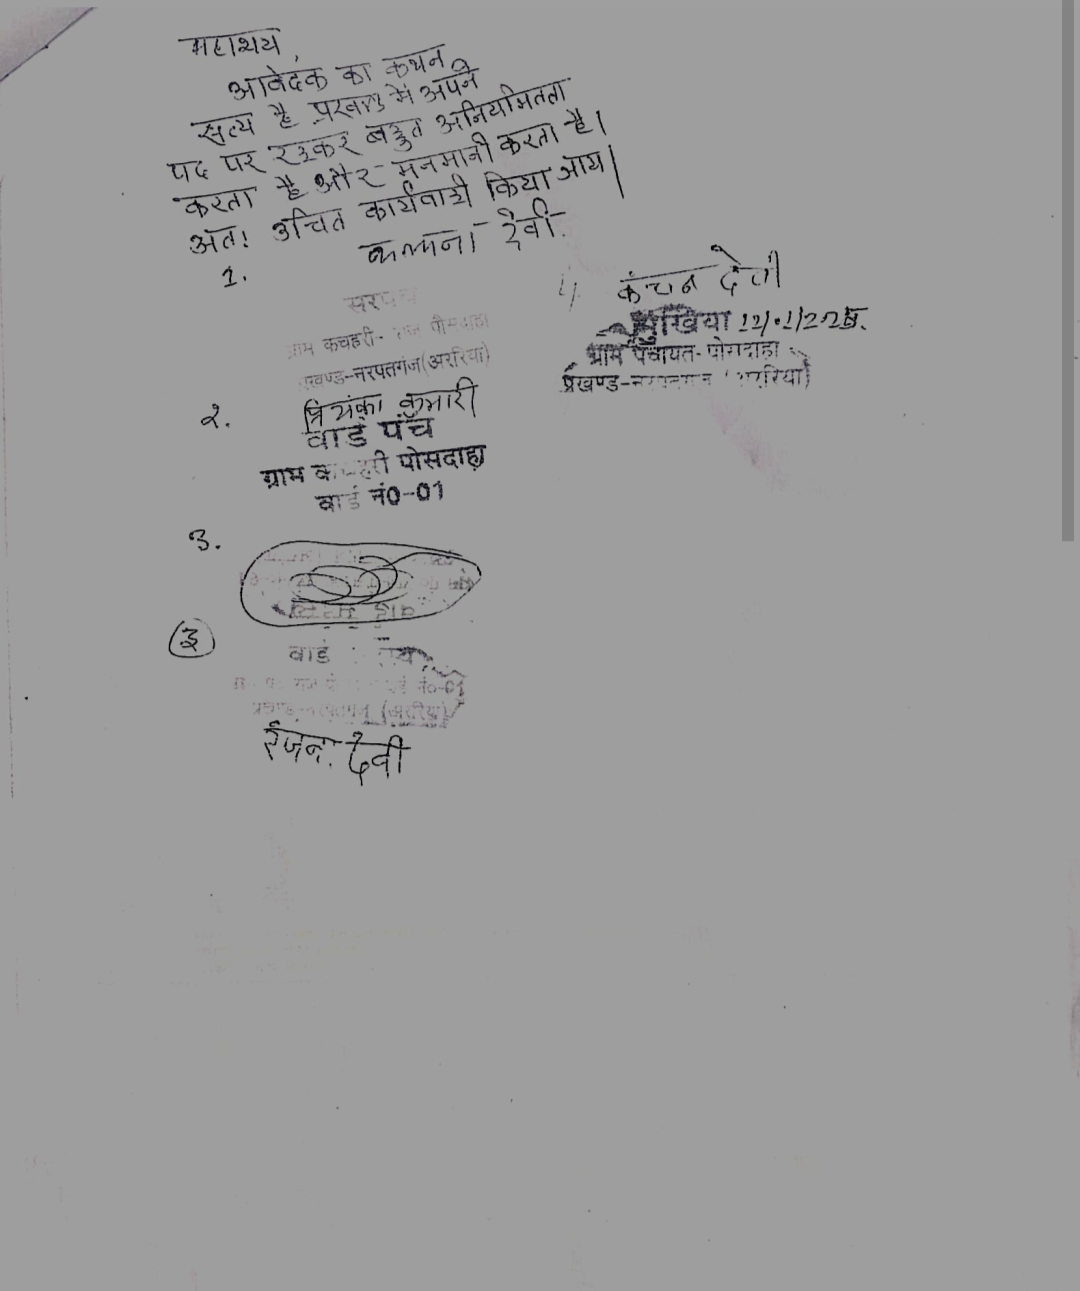 महाशय,
आवेदक का कथन
सत्य है प्रखण्ड में अपने
पद पर रहकर बहुत अनियमितता
करता है और मनमानी करता है।
अतः उचित कार्यवाही किया जाय।
1. कल्पना देवी
सरपंच
ग्राम कचहरी- पोसदाहा
प्रखण्ड-नरपतगंज(अररिया)
4. कंचन देवी
मुखिया
ग्राम पंचायत- पोसदाहा
प्रखण्ड-नरपतगंज (अररिया)
2. प्रियंका कुमारी
वार्ड पंच
ग्राम कचहरी पोसदाहा
वार्ड नं0-01
3.
3
वार्ड
वार्ड नं0-01
प्रखण्ड-नरपतगंज (अररिया)
रंजना देवी